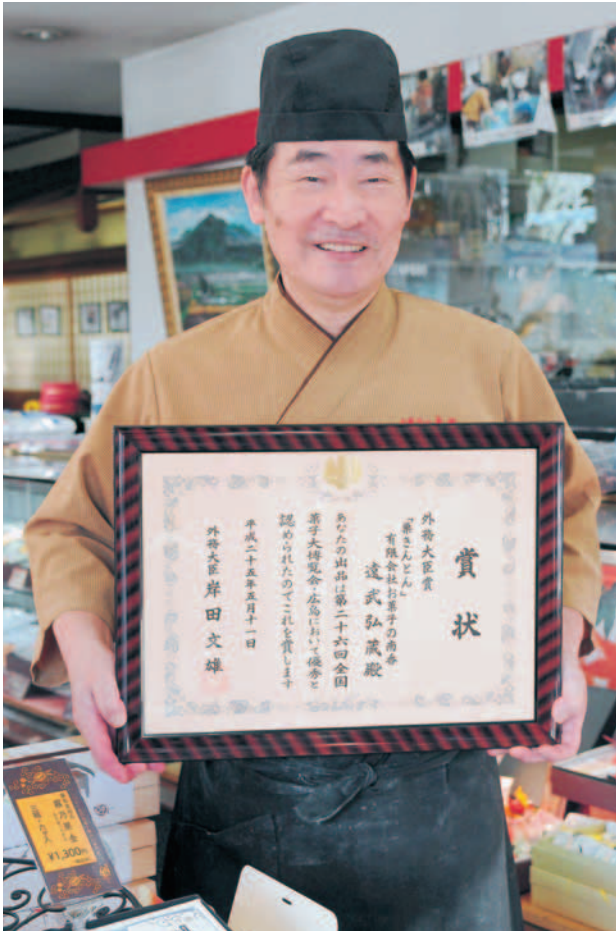 賞状
外務大臣賞
「栗きんとん」
有限会社お菓子の南香
遠武弘蔵殿
あなたの出品は第二十六回全国
菓子大博覧会・広島において優秀と
認められたのでこれを賞します
平成二十五年五月十一日
外務大臣 岸田文雄
¥1,300円